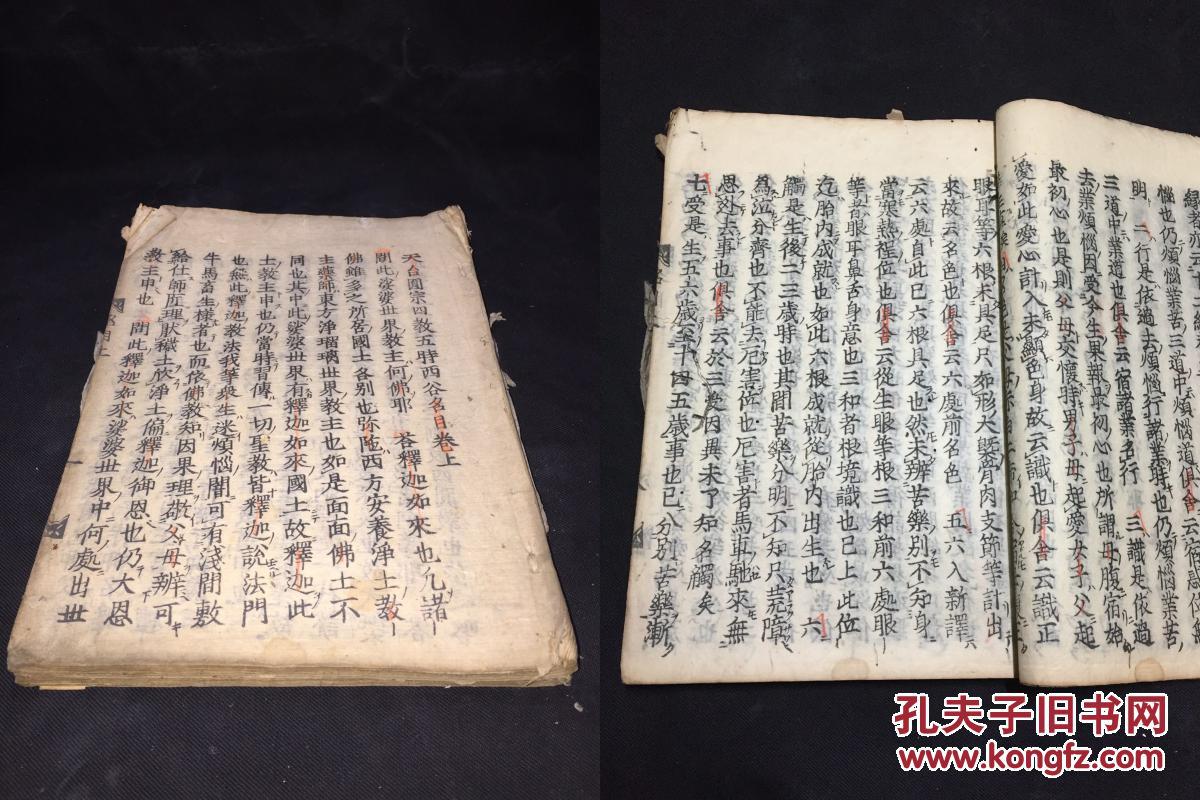 天台圓宗四教五時西谷名目卷上
問此娑婆世界教主何佛耶 答釋迦如來也凡諸
佛雖多之所居國土各別也弥陀西方安養淨土教
主藥師東方淨瑠璃世界教主也如是面面佛土不
同也其中此娑婆世界有釋迦如來國土故釋迦此
土教主申也仍當時習傳一切聖教皆釋迦說法門
也無此釋迦教法我等衆生迷煩惱闇可有淺間敷
牛馬畜生樣者也而依佛教知因果理敬父母辨可
給仕師匠理厭穢土欣淨土偏釋迦御恩也仍大恩
教主申也 問此釋迦如來娑婆世界中何處出世
惱也仍煩惱業苦
三道中煩惱道俱舍云
明 二行是依過去煩惱行諸業時也仍煩惱業苦
三道中業道也俱舍云宿諸業名行 三識是依過
去業煩惱因受今生果報最初心也所謂母腹宿始
最初心也是則父母交懷時男子母起愛女子父起
愛如此愛心計入未顯色身故云識也俱舍云識正
眼耳等六根未具足只如形大槩骨肉支節等計出
來故云名色也俱舍云六處前名色 五六入新譯
云六處自此已六根具足也然未辨苦樂別不知身
當寒熱程位也俱舍云從生眼等根三和前六處眼
等者眼耳鼻舌身意也三和者根境識也已上此位
迄胎內成就也如此六根成就從胎內出生也 六
觸是生後二三歲時也其間苦樂分明不知只荒障
爲泣分齊也不能去厄害倅也厄害者馬車馳來無
思處去事也俱舍云於三受因異未了知名觸矣
七受是生五六歲至十四五歲事也已分別苦樂漸
孔夫子旧书网
www.kongfz.com